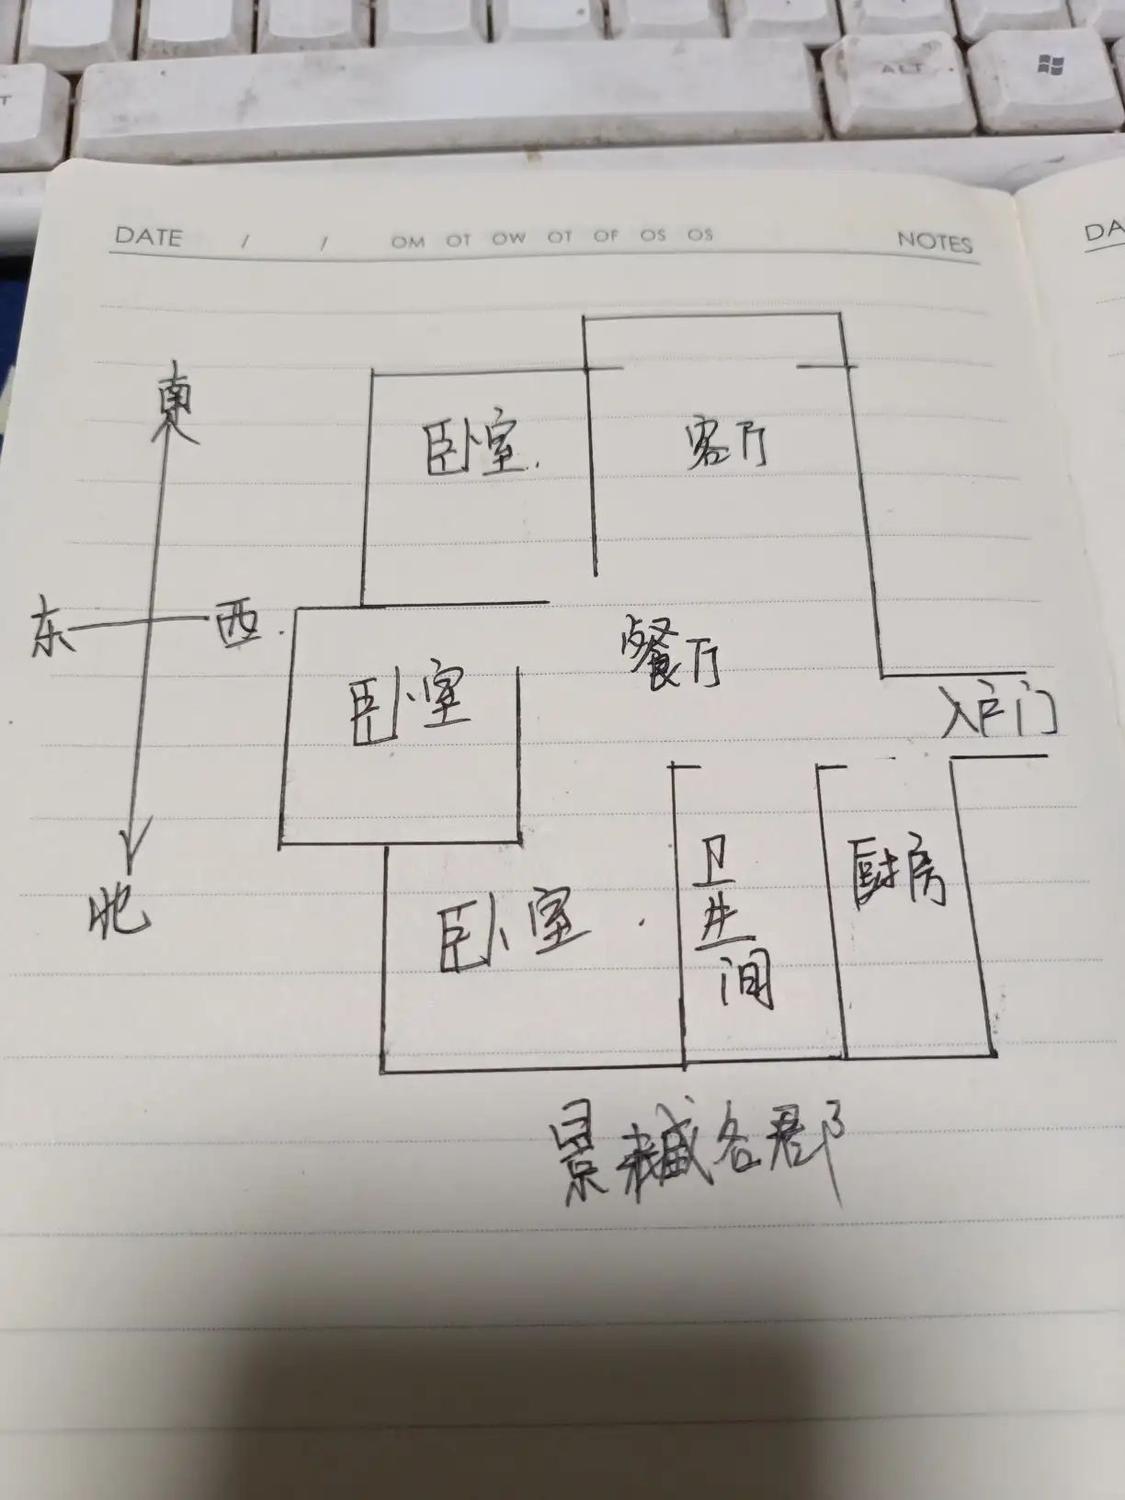 T
ALT
DATE / / OM OT OW OT OF OS OS NOTES
DA
南
卧室
客厅
东 西
餐厅
卧室
入户门
卫生间
厨房
北
卧室
景 各郡